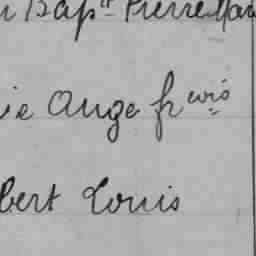 n Bapte Pierre Mar
ie Ange frcois
bert Louis